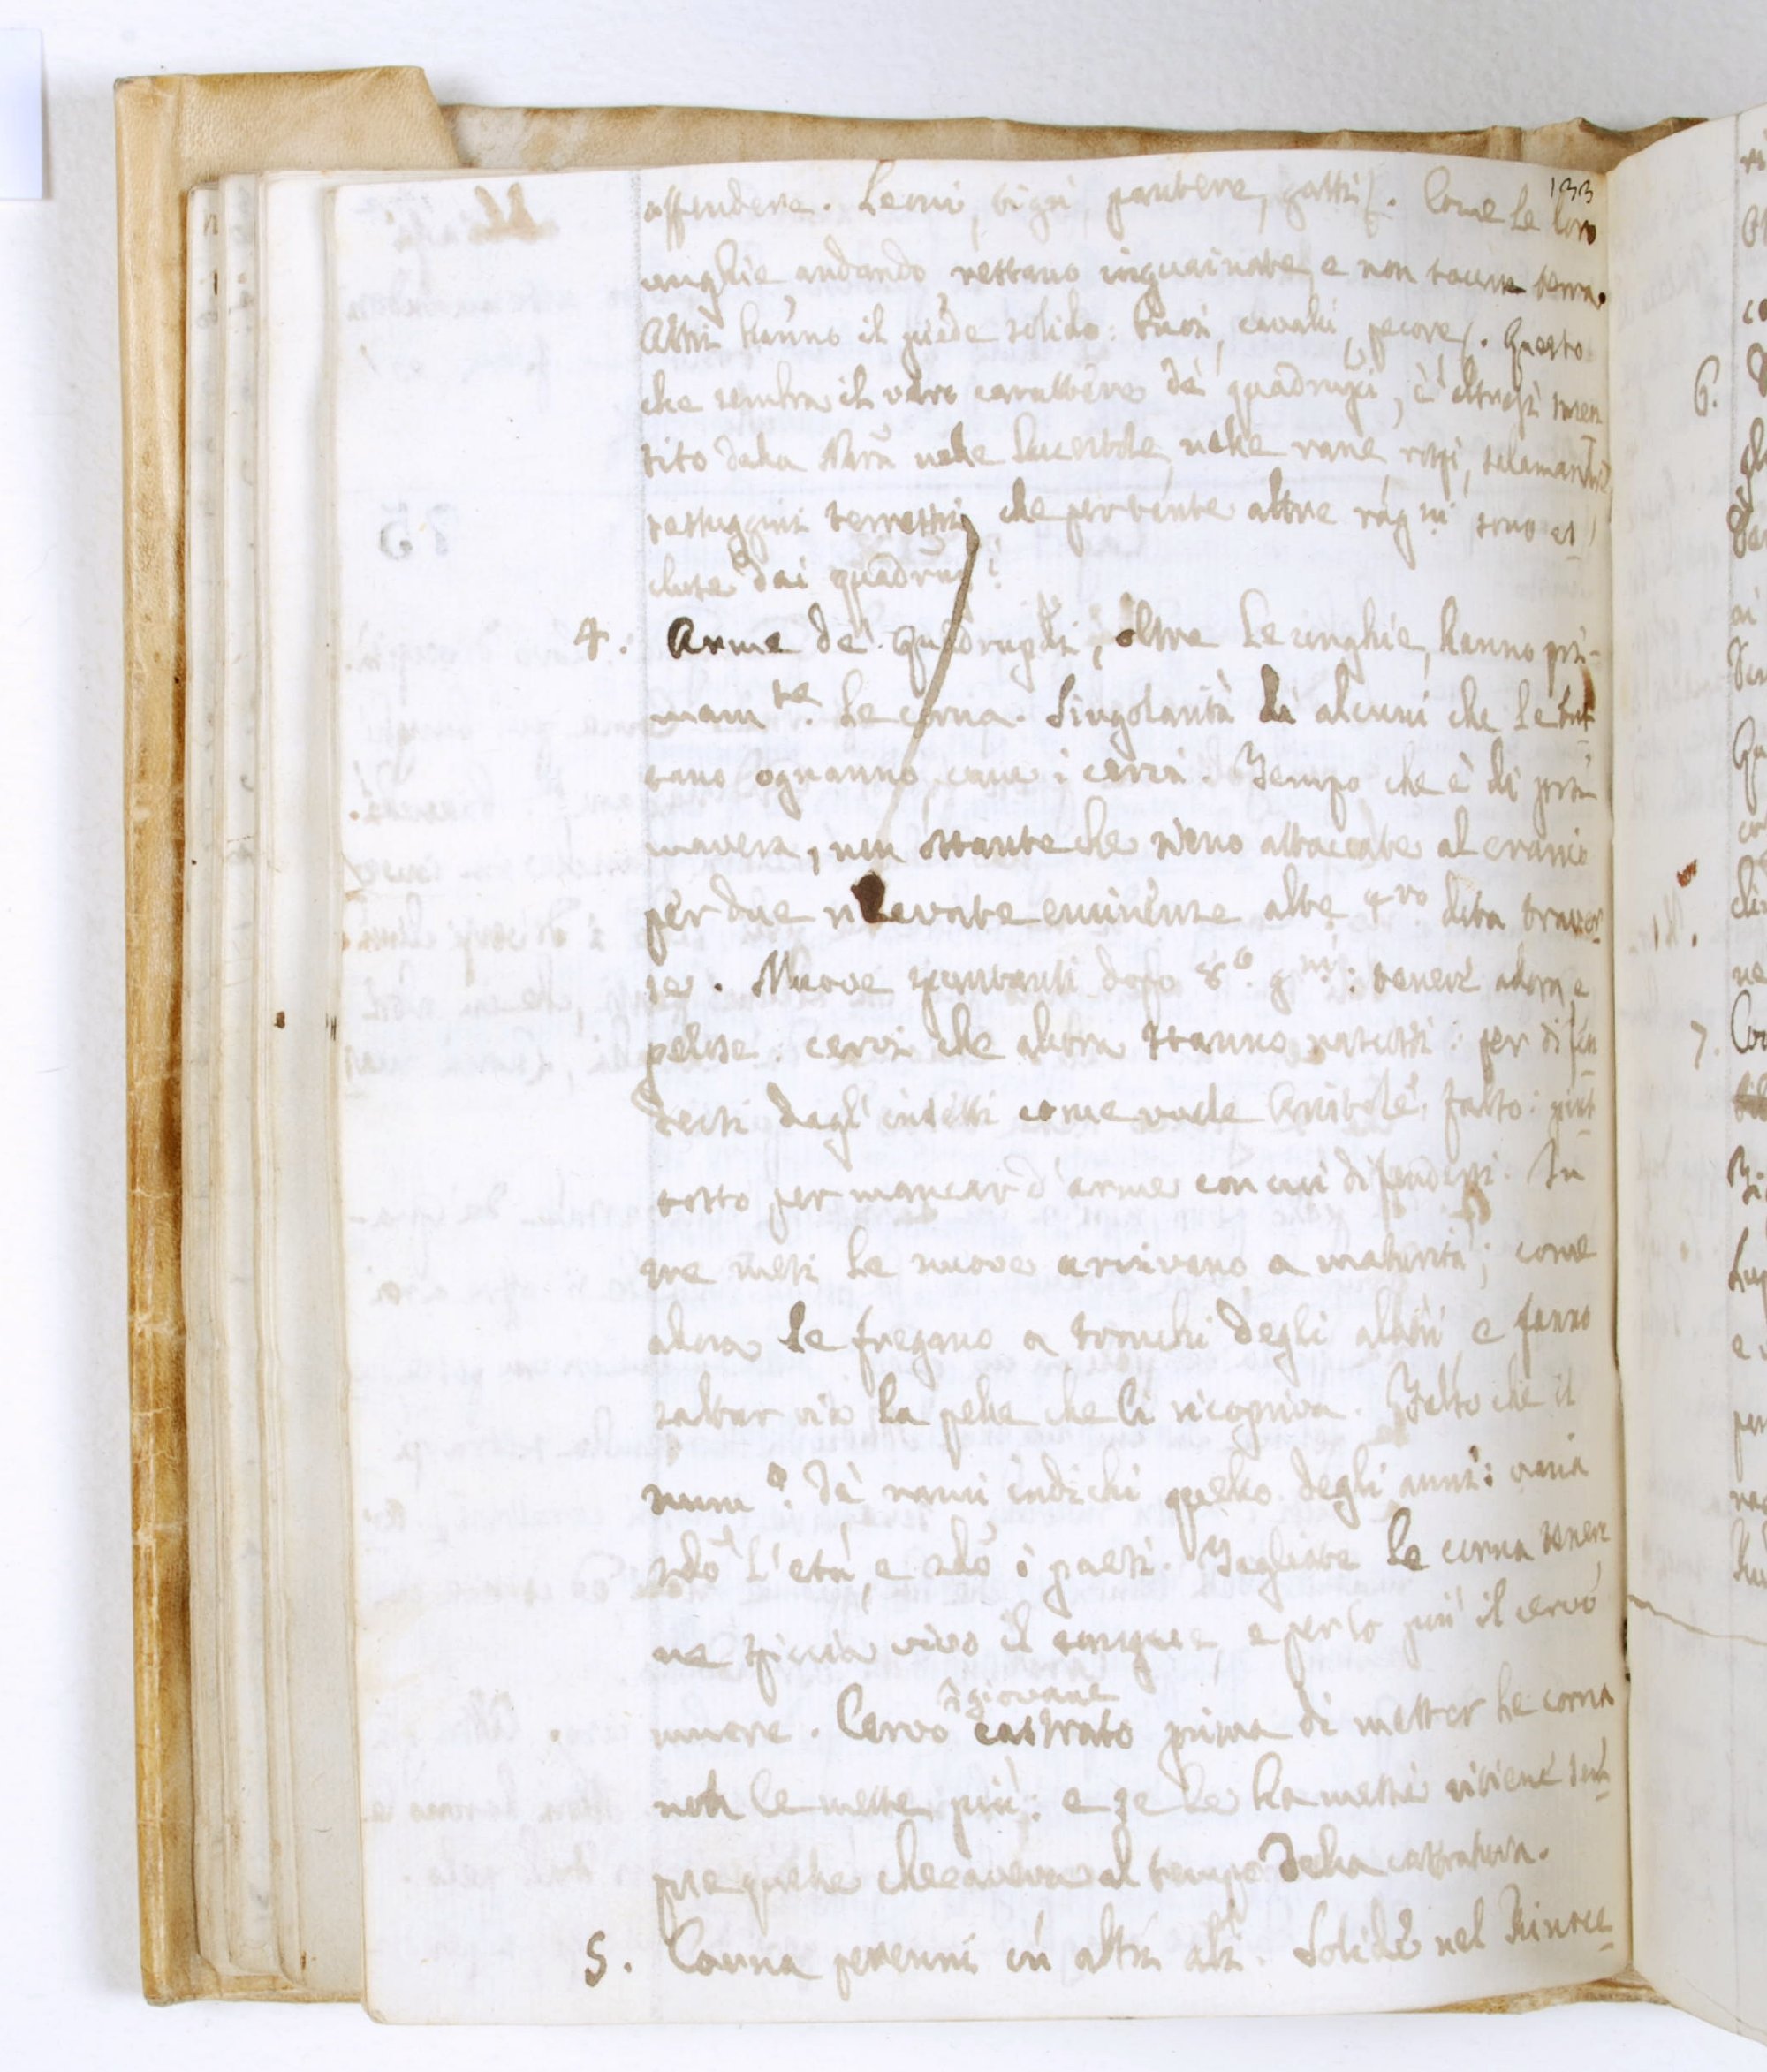 133
offendere. Leoni, tigri, pantere, gatti. Come le loro
unghie andando restano inguainate, e non toccan terra.
Altri hanno il piede solido: buoi, cavalli, pecore. Questo
che sembra il vero carattere de' quadrupi, è altresì smen
tito dalla Nara nelle lucertole, nelle rane, rospi, salamandre
testuggini terrestri, che per tante altre ragni sono es
cluse dai quadrupi.
4. Arme de' Quadrupedi, oltre le unghie, hanno pri-
mam.te le corna. Singolarità di alcuni che le but
tano ognanno, come i cervi. Tempo che è di pri
mavera, non ostante che sieno attaccate al cranio
per due rilevate eminenze alte 4ro dita traver
se. Nuove spuntanti dopo 8o. gni: tenere allora, e
pelose: cervi che allora stanno nascosti: per difen
dersi dagl' insetti come vuole Aristotele: falso: piut
tosto per mancar d'arme con cui difendersi. In
tre mesi le nuove arrivano a maturità; come
allora le fregano a tronchi degli alberi e fanno
saltar via la pelle che li ricopriva. Falso che il
num.o de' rami indichi quello degli anni: varia
sdo l'età, e sdo i paesi. Tagliate le corna tenere,
ne spiccia vivo il sangue, e per lo più il cervo
giovane
muore. Cervo castrato prima di metter le corna
non le mette più: e se le ha messe ritiene sem
pre quelle che aveva al tempo della castratura.
5. Corna perenni in altri ali. Solide nel Rinoce
6.
7.